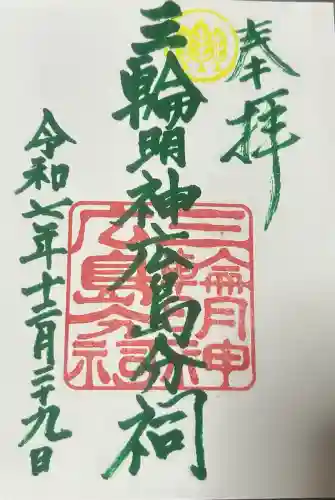 奉拝
三輪明神広島分祠
令和七年十二月二十九日
三輪明神
広島分祠